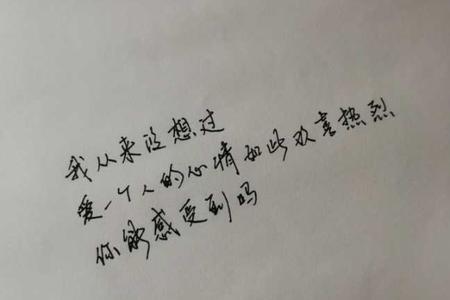 我从来没想过
爱一个人的心情如此欢喜热烈
你能感受到吗